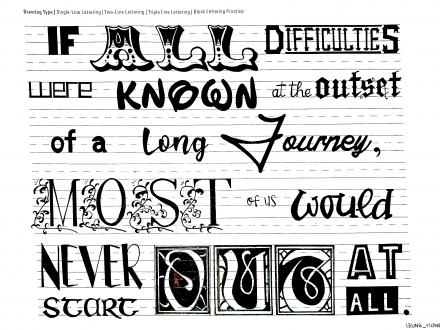 Drawing Type | Single-Line Lettering | Two-Line Lettering | Triple Line Lettering | Block Lettering Practice
IF ALL DIFFICULTIES
were KNOWN at the outset
of a long Journey,
MOST of us would
NEVER START OUT AT ALL.